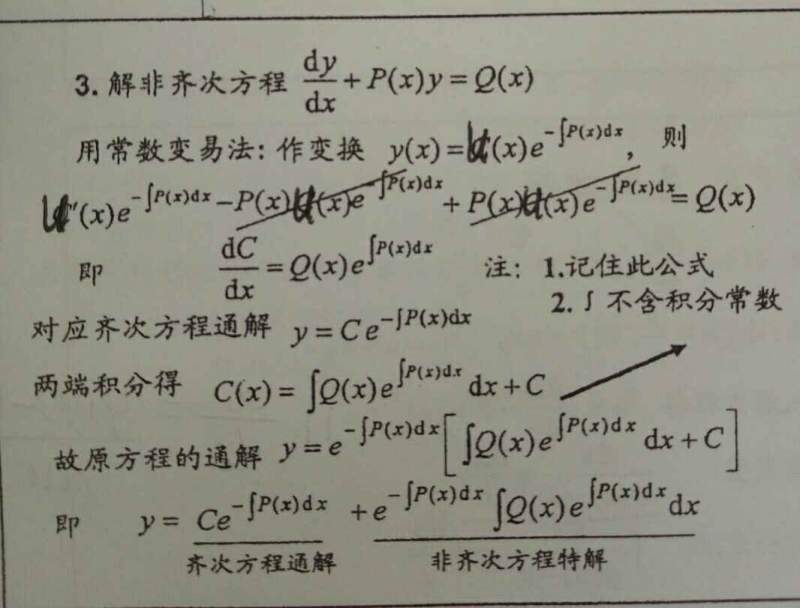 3. 解非齐次方程 dy/dx + P(x)y = Q(x)
用常数变易法: 作变换 y(x) = u(x)e^{-∫P(x)dx}, 则
u'(x)e^{-∫P(x)dx} - P(x)u(x)e^{-∫P(x)dx} + P(x)u(x)e^{-∫P(x)dx} = Q(x)
即 dC/dx = Q(x)e^{∫P(x)dx} 注: 1.记住此公式
2. ∫ 不含积分常数
对应齐次方程通解 y = Ce^{-∫P(x)dx}
两端积分得 C(x) = ∫Q(x)e^{∫P(x)dx} dx + C
故原方程的通解 y = e^{-∫P(x)dx} [∫Q(x)e^{∫P(x)dx} dx + C]
即 y = Ce^{-∫P(x)dx} + e^{-∫P(x)dx} ∫Q(x)e^{∫P(x)dx} dx
齐次方程通解 非齐次方程特解